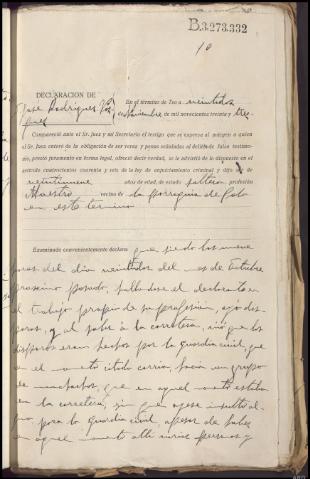 B.3.273.332
10
DECLARACION DE
José Rodríguez
En el término de Teo a veintidos
noviembre de mil novecientos treinta y tres
Compareció ante el Sr. Juez y mi Secretario el testigo que se expresa al márgen a quien
el Sr. Juez enteró de la obligación de ser veraz y penas señaladas al delito de falso testimo-
nio, prestó juramento en forma legal, ofreció decir verdad, se le advirtió de lo dispuesto en el
artículo cuatrocientos cuarenta y seis de la ley de enjuiciamiento criminal y dijo
veintinueve años de edad, de estado soltero profesión
Maestro vecino de la parroquia de
en este término
Examinado convenientemente declara: que siendo las nueve
horas del día veintidos del mes de Octubre
próximo pasado, hallándose el declarante en
el trabajo propio de su profesión, oyó dis-
paros, y al salir a la carretera, vió que los
disparos eran hechos por la guardia civil, que
en el momento citado corría hacia un grupo
de muchachos, que en aquel momento estaban
en la carretera, sin que oyese insulto al-
guno para la guardia civil, apesar de haber
en aquel momento allí varias personas y